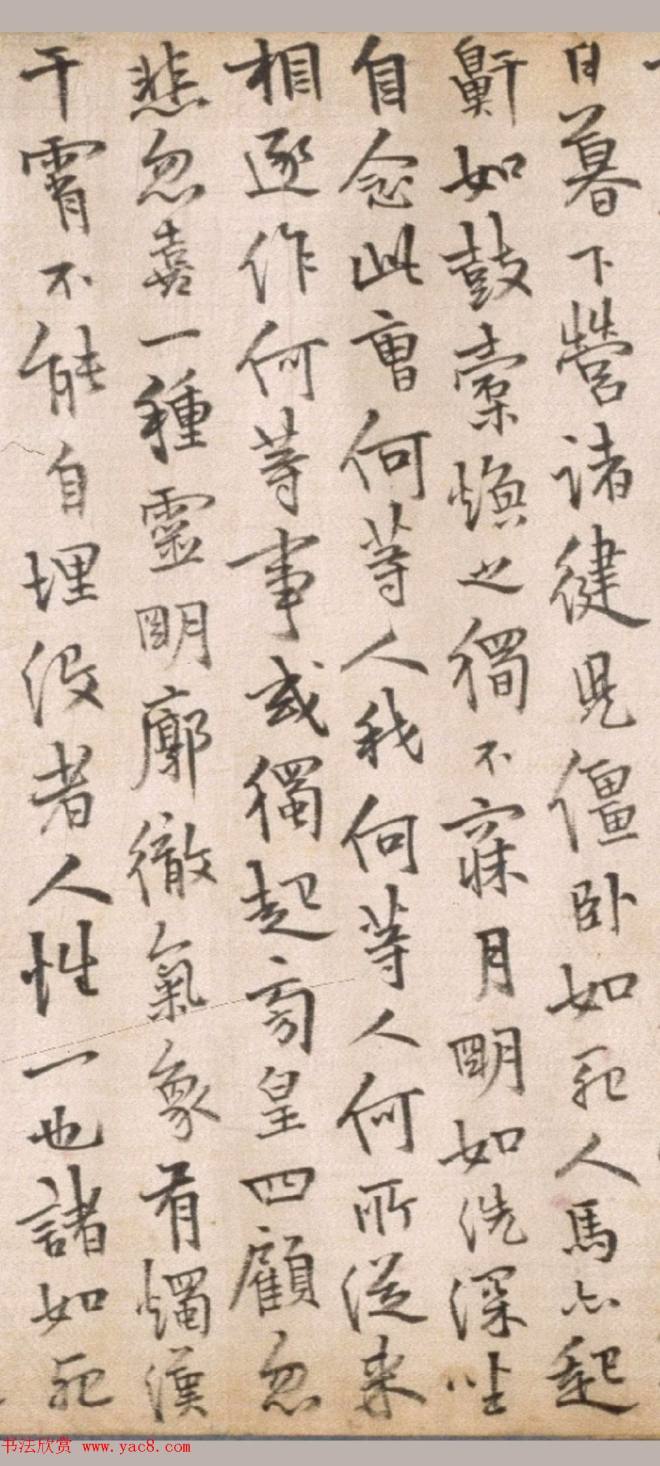 日暮下營諸健兒僵卧如死人馬亦起
鼾如鼓橐煥之獨不寐月明如洗深坐
自念此曹何等人我何等人何所從来
相逐作何等事或獨起彷皇四顧忽
悲忽喜一種靈明廓徹氣象有燭漢
干霄不能自埋没者人性一也諸如死
书法欣赏 www.yac8.com